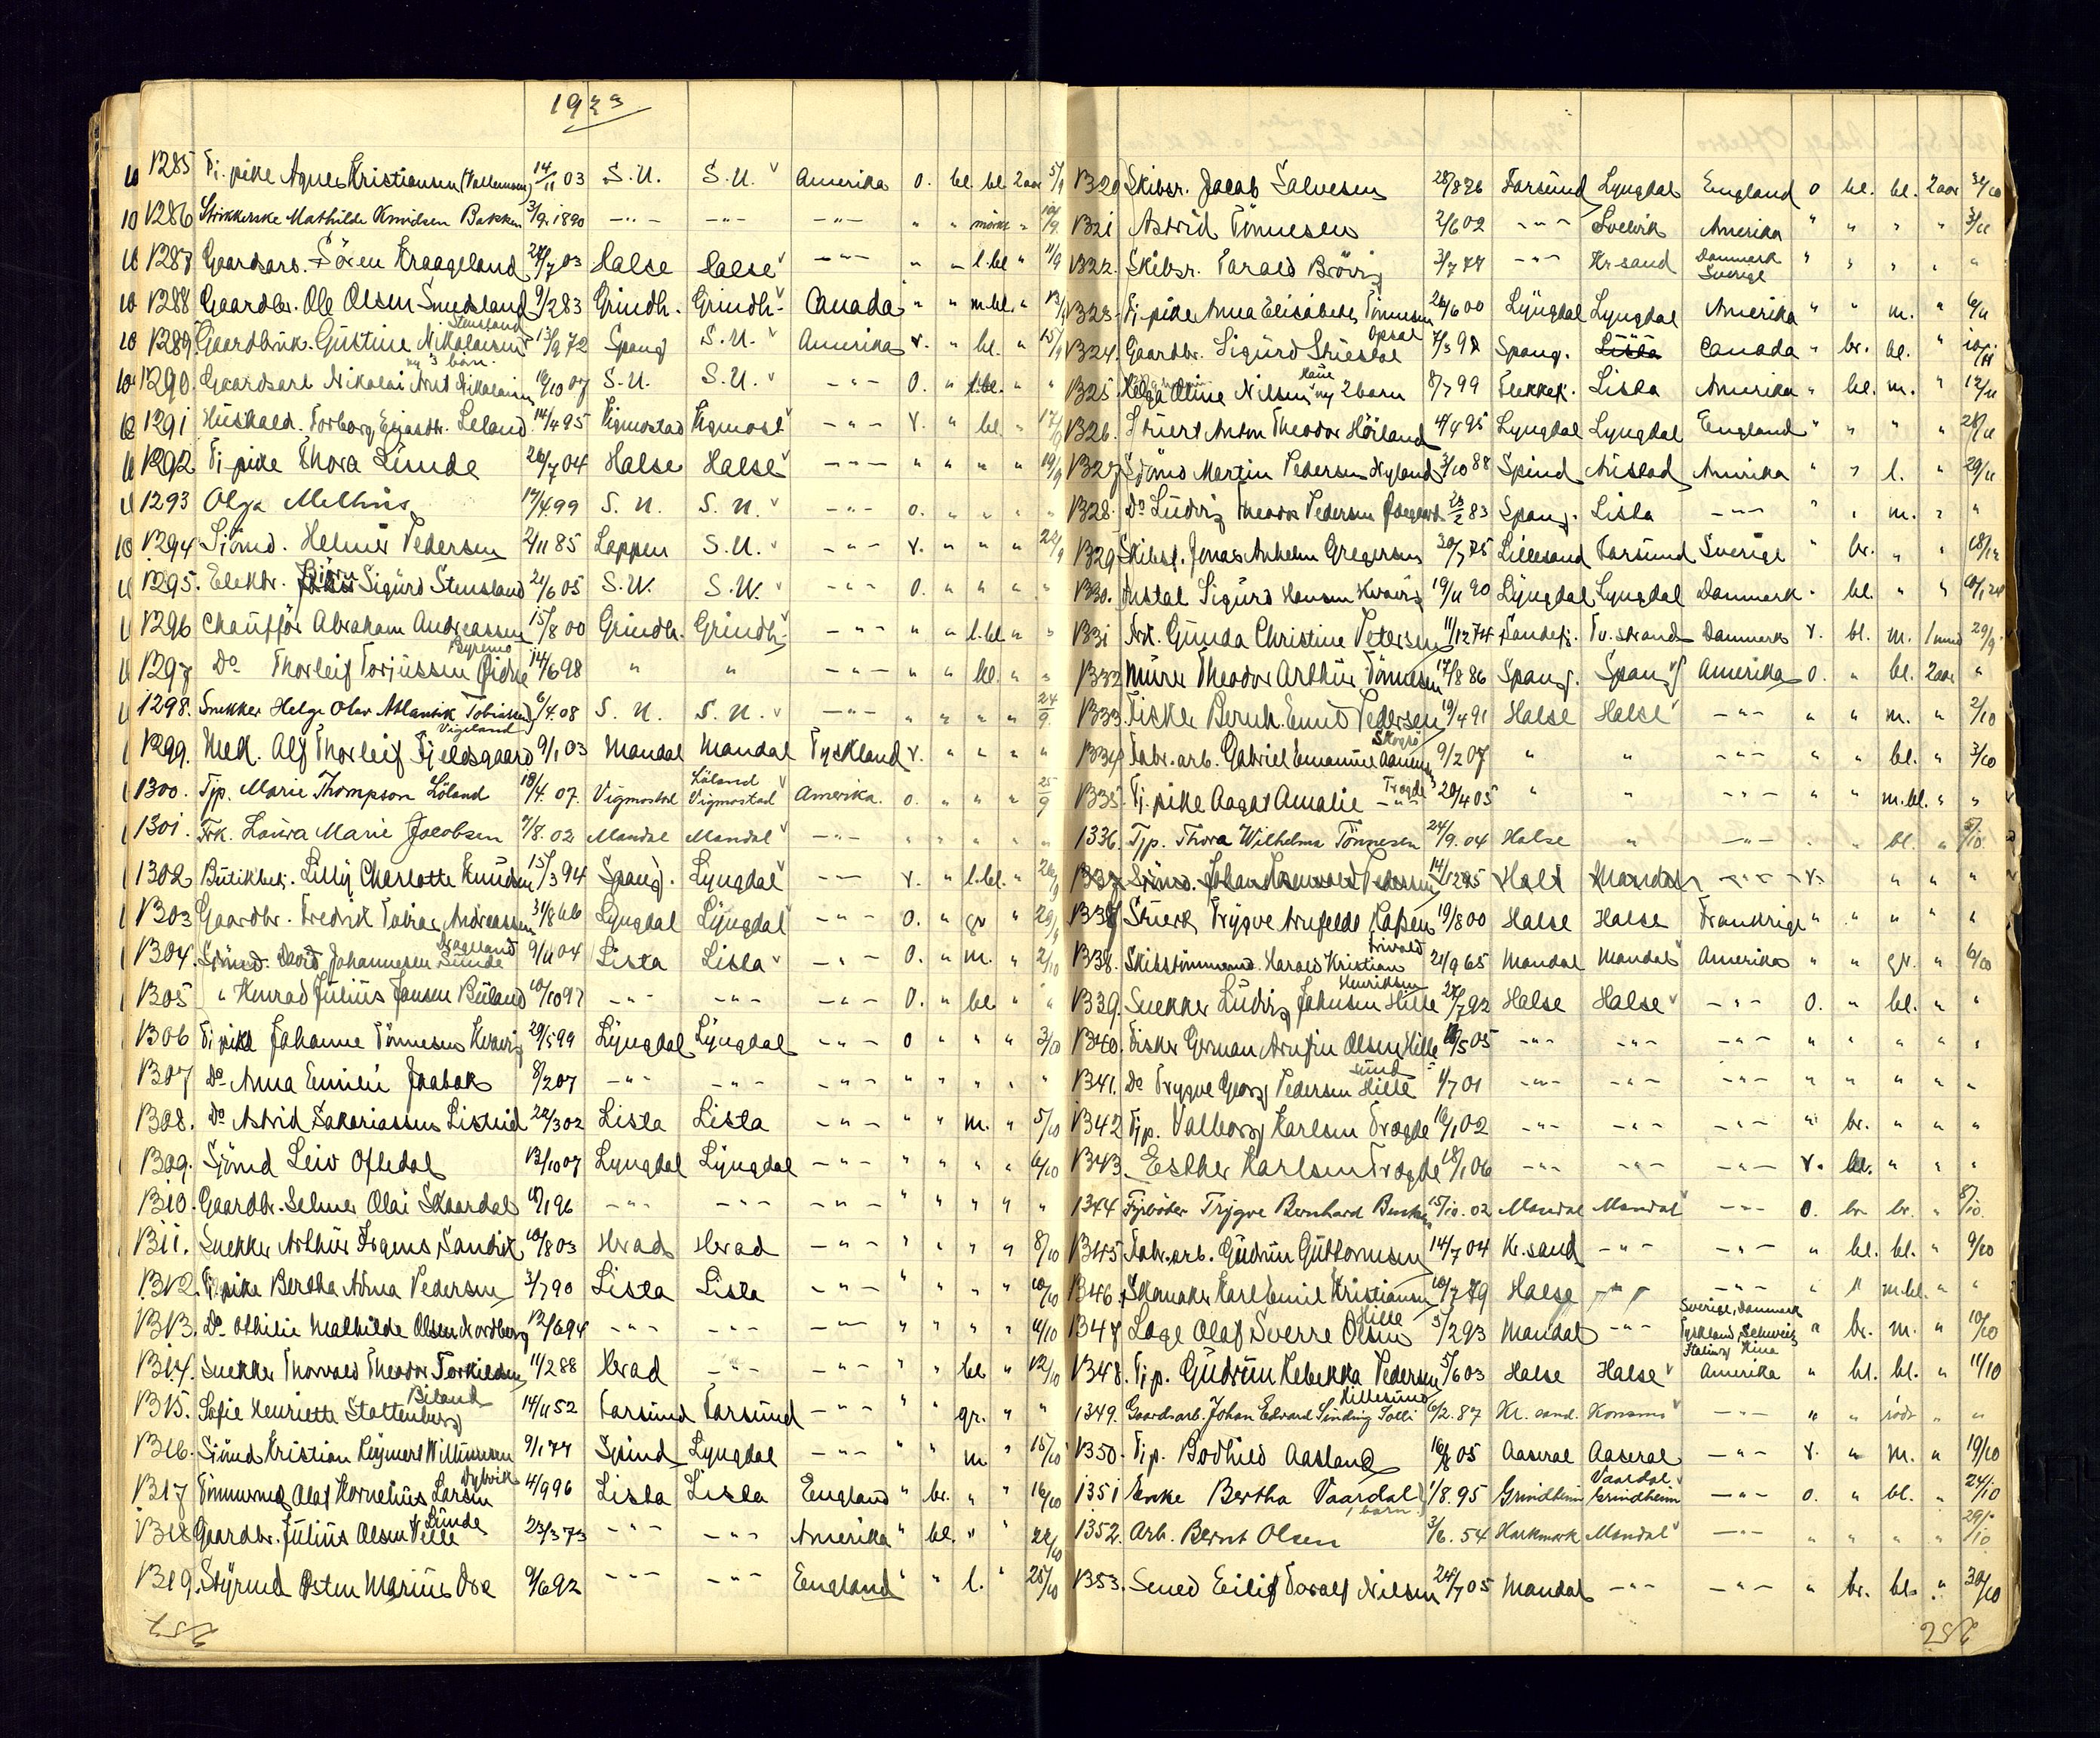 1923
1285 Fr. pike Agnes Kristiansen (Vallemoen) 14/11 03 S.U. S.U. Amerika o. bl. bl. 2 aar 5/9
1286 Strikkerske Mathilde Knudsen Bakken 3/9.1890 -"- -"- -"- " " mörkt "
1287 Gaardsarb. Sören Kraageland 24/7 03 Halse Halse -"- " " l.bl " 11/9
1288 Gaardbr. Ole Olsen Smedsland 9/2 83 Grindh. Grindh. Canada " " m.bl. " 13/9
1289 Gaardbruk. Gustine Nikolaisen Stensland og 3 börn 13/9 72 Spang. S.U. Amerika v. " bl. " 15/9
1290. Gaardsarb Nikolai Arnt Nikolaisen 10/10 07 S.U. S.U. -"- O. " l.bl. " "
1291 Huskald. Torborg Eliasdtr. Leland 14/4 95 Vigmostad Vigmost -"- v. " bl. " 17/9
1292 Fr. pike Thora Lunde 26/7 04 Halse Halse -"- " " " " 19/9
1293 Olga Melhus 17/4.99 S. U. S. U. -"- o. " " " "
1294 Sjömd. Helmer Pedersen 2/11 85 Loppen S.U. -"- v. " " " 22/9
1295. Elektr. Björn Sigurd Stensland 21/6 05 S.U. S.U. -"- O. " " " "
1296 Chaufför Abraham Andreassen 15/8 00 Grindh. Grindh. -"- " " l.bl " "
1297 Do Thorleif Torjussen Byremo Eidse 14/6 98 " " -"- " " bl. " "
1298. Snekker Helge Olav Atlantik Tobiassen 6/4.08 S. U. S. U. -"- " " " " 24/9
1299. Mek. Alf Thorleif Fjeldsgaard Vigeland 9/1 03 Mandal Mandal Tyskland v. " " " "
1300. Tjp. Marie Thompson Löland 18/4. 07. Vigmostad Löland Vigmostad Amerika. o. " " " 25/9
1301. Frk. Laura Marie Jacobsen 7/8. 02 Mandal Mandal -"- " " " " "
1302 Butikbetj. Lilly Charlotte Knudsen 15/3 94 Spang. Lyngdal -"- v. " l.bl. " 26/9
1303 Gaardbr. Fredrik Tobias Andreassen 31/8 66 Lyngdal Lyngdal -"- O. " gr " 29/9
1304. Sjömd. David Johannesen Sunde 9/11 04 Lista Lista -"- O. " m. " 2/10
1305 " Konrad Julius Jansen Buland 10/10 97 -"- -"- -"- O. " bl " "
1306 Fr. pike Johanne Tönnesen Kvavig 29/5 99 Lyngdal Lyngdal -"- O " " " 3/10
1307 Do Anna Emilie Jaabæk 8/2 07 -"- -"- -"- " " " " "
1308. Do Astrid Sakariassen Listeid 20/3 02 Lista Lista -"- " " m. " 5/10
1309. Sjömd Leiv Oftedal 13/10 07 Lyngdal Lyngdal -"- " " " " 6/10
1310. Gaardbr. Selmer Olai Skaardal -"- -"- -"- " " " " "
1311. Snekker Arthur Frgens Sandvik 10/8 03 Herad Herad -"- " " " " 8/10
1312. Fr. pike Bertha Adna Pedersen 3/7 90 Lista Lista -"- " " " " 10/10
1313. Do Othilie Mathilde Olsen Nordberg 12/6 94 -"- -"- -"- " " " " 11/10
1314. Snekker Thorvald Theodor Torkildsen 11/2 88 Herad -"- -"- " " bl " 12/10
1315. Sofie Henriette Stoltenberg Biland 14/11 52 Farsund Farsund -"- " " gr. " "
1316. Sjömd Kristian Reymert Willumsen 9/1 77 Spind Lyngdal -"- " " m " 15/10
1317 Tömmermd Olaf Kornelius Larsen Dybvik 4/9 96 Lista Lista England " br. " " 16/10
1318 Gaardbr. Julius Olsen Velle Sunde 23/3 73 -"- -"- Amerika " bl. " " 22/10
1319. Styrmd Osten Marius Ore 9/6 92 -"- -"- England " " l. " 25/10
257
1320 Skibsr. Jacob Salvesen 28/8 76 Farsund Lyngdal England o bl. bl. 2 aar
1321 Astrid Tönnesen 2/6 02 -"- Svelvik Amerika " " " " 3/11
1322. Skibsr. Tarald Brövig 3/7 77 -"- Kr.sand Danmark Sverige " " " " "
1323. Fr. pike Anna Elisabeth Tönnesen 26/6 00 Lyngdal Lyngdal Amerika " " m. " 6/11
1324. Gaardbr. Sigurd Skiestad Opsal 7/3 98 Spang. Lista Canada " br. bl. " 10/11
1325. Helga Oline Nilsen Haue og 2 barn 8/7 99 Flekkef. Lista Amerika " bl. m. " 12/11
1326. Stuert Anton Theodor Hörland 4/4 95 Lyngdal Lyngdal England " " " " 28/11
1327 Sjömd Martin Pedersen Nyland 3/10 88 Spind Austad Amerika " " l. " 29/11
1328. Do Ludvig Theodor Pedersen 23/2 83 Spang. Lista -"- " " m. " "
1329 Skibsf. Jonas Anhelm Gregersen 30/7 75 Lillesand Farsund Sverige " br. " " 18/12
1330. Anstal Sigurd Hansen Kvavig 19/11 90 Lyngdal Lyngdal Danmark " bl. " "
1331 Frk. Gunda Christine Petersen 11/12 74 Sandefj. Tv.strand Danmark v. bl. m. 1 mnd 29/9
1332 Murer Theodor Arthur Tönnesen 17/8 86 Spang. Spang Amerika O. " bl. 2 aar "
1333. Fisker Bernh. Emil Pedersen 19/4 91 Halse Halse -"- " " m. " 2/10
1334 Fabr.arb. Gabriel Emanuel Aanensen Skogsö 9/2 07 " " -"- " " bl. " 3/10
1335. Fr. pike Aagot Amalie -"- Trogde 20/4 05 " " -"- " " m.bl. " "
1336. Tjp. Thora Wilhelma Tönnesen 24/9. 04 Halse " -"- " " bl. " 5/10
1337 Sjömd. Johan Pedersen Halse Mandal -"- v. " " " "
1337 Stuert Trygve Arnfeldt Larsen 19/8 00 Halse Halse Frankrige " " " " "
1338. Skibstömmermd. Harald Kristian Trivold 21/9 65 Mandal Mandal Amerika " " gr. " 6/10
1339. Snekker Ludvig Johnsen Hille Henriksen 24/7 92 Halse Halse -"- O. " bl. " "
1340. Fisker German Arnfin Olsen Hille /5 05 -"- -"- -"- " " " " "
1341. Do Trygve Georg Pedersen Hille sund 1/7 01 -"- -"- -"- " " " " "
1342 Tjp. Valborg Karlsen Trogde 16/1 02 -"- -"- -"- " br. " " "
1343. Esther Karlsen Trogde 18/1 06 -"- -"- -"- v. bl. " " "
1344 Fyrböder Trygve Bernhard 15/10. 02 Mandal Mandal -"- O. br br. " 8/10
1345 Fabr.arb. Gudrun Guttormsen 14/7 04 Kr.sand -"- -"- " bl. bl. " 9/10
1346. Skomaker Karl Emil Kristiansen 10/7 79 Halse -"- -"- " " m.bl. " "
1347 Lage Olaf Sverre Olsen Hille 5/2 93 Mandal -"- Sverige, Danmark Tyskland, Schweiz Italien, Kina " br. m. " 10/10
1348. Tjp. Gudrun Rebekka Pedersen 5/6 03 Halse Halse Amerika " bl. bl. " 11/10
1349. Gaardsarb. Johan Edvard Sinding Solli Killesund 6/2. 87 Kr. sand. Konsmo -"- " " rödt " "
1350. Tjp. Bodhild Aasland 05 Aaseral Aaseral -"- v. " m. " 19/10
1351 Enke Bertha Vaardal (1 barn.) 1/8. 95 Grindheim Vaardal Grindheim -"- o. " bl. " 24/10
1352. Arb. Bernt Olsen 3/6. 54 Harkmark Mandal -"- " " " " 29/10
1353. Smed Eilif Toralf Nilsen 24/7 05 Mandal -"- -"- " br. bl. " 30/10
256